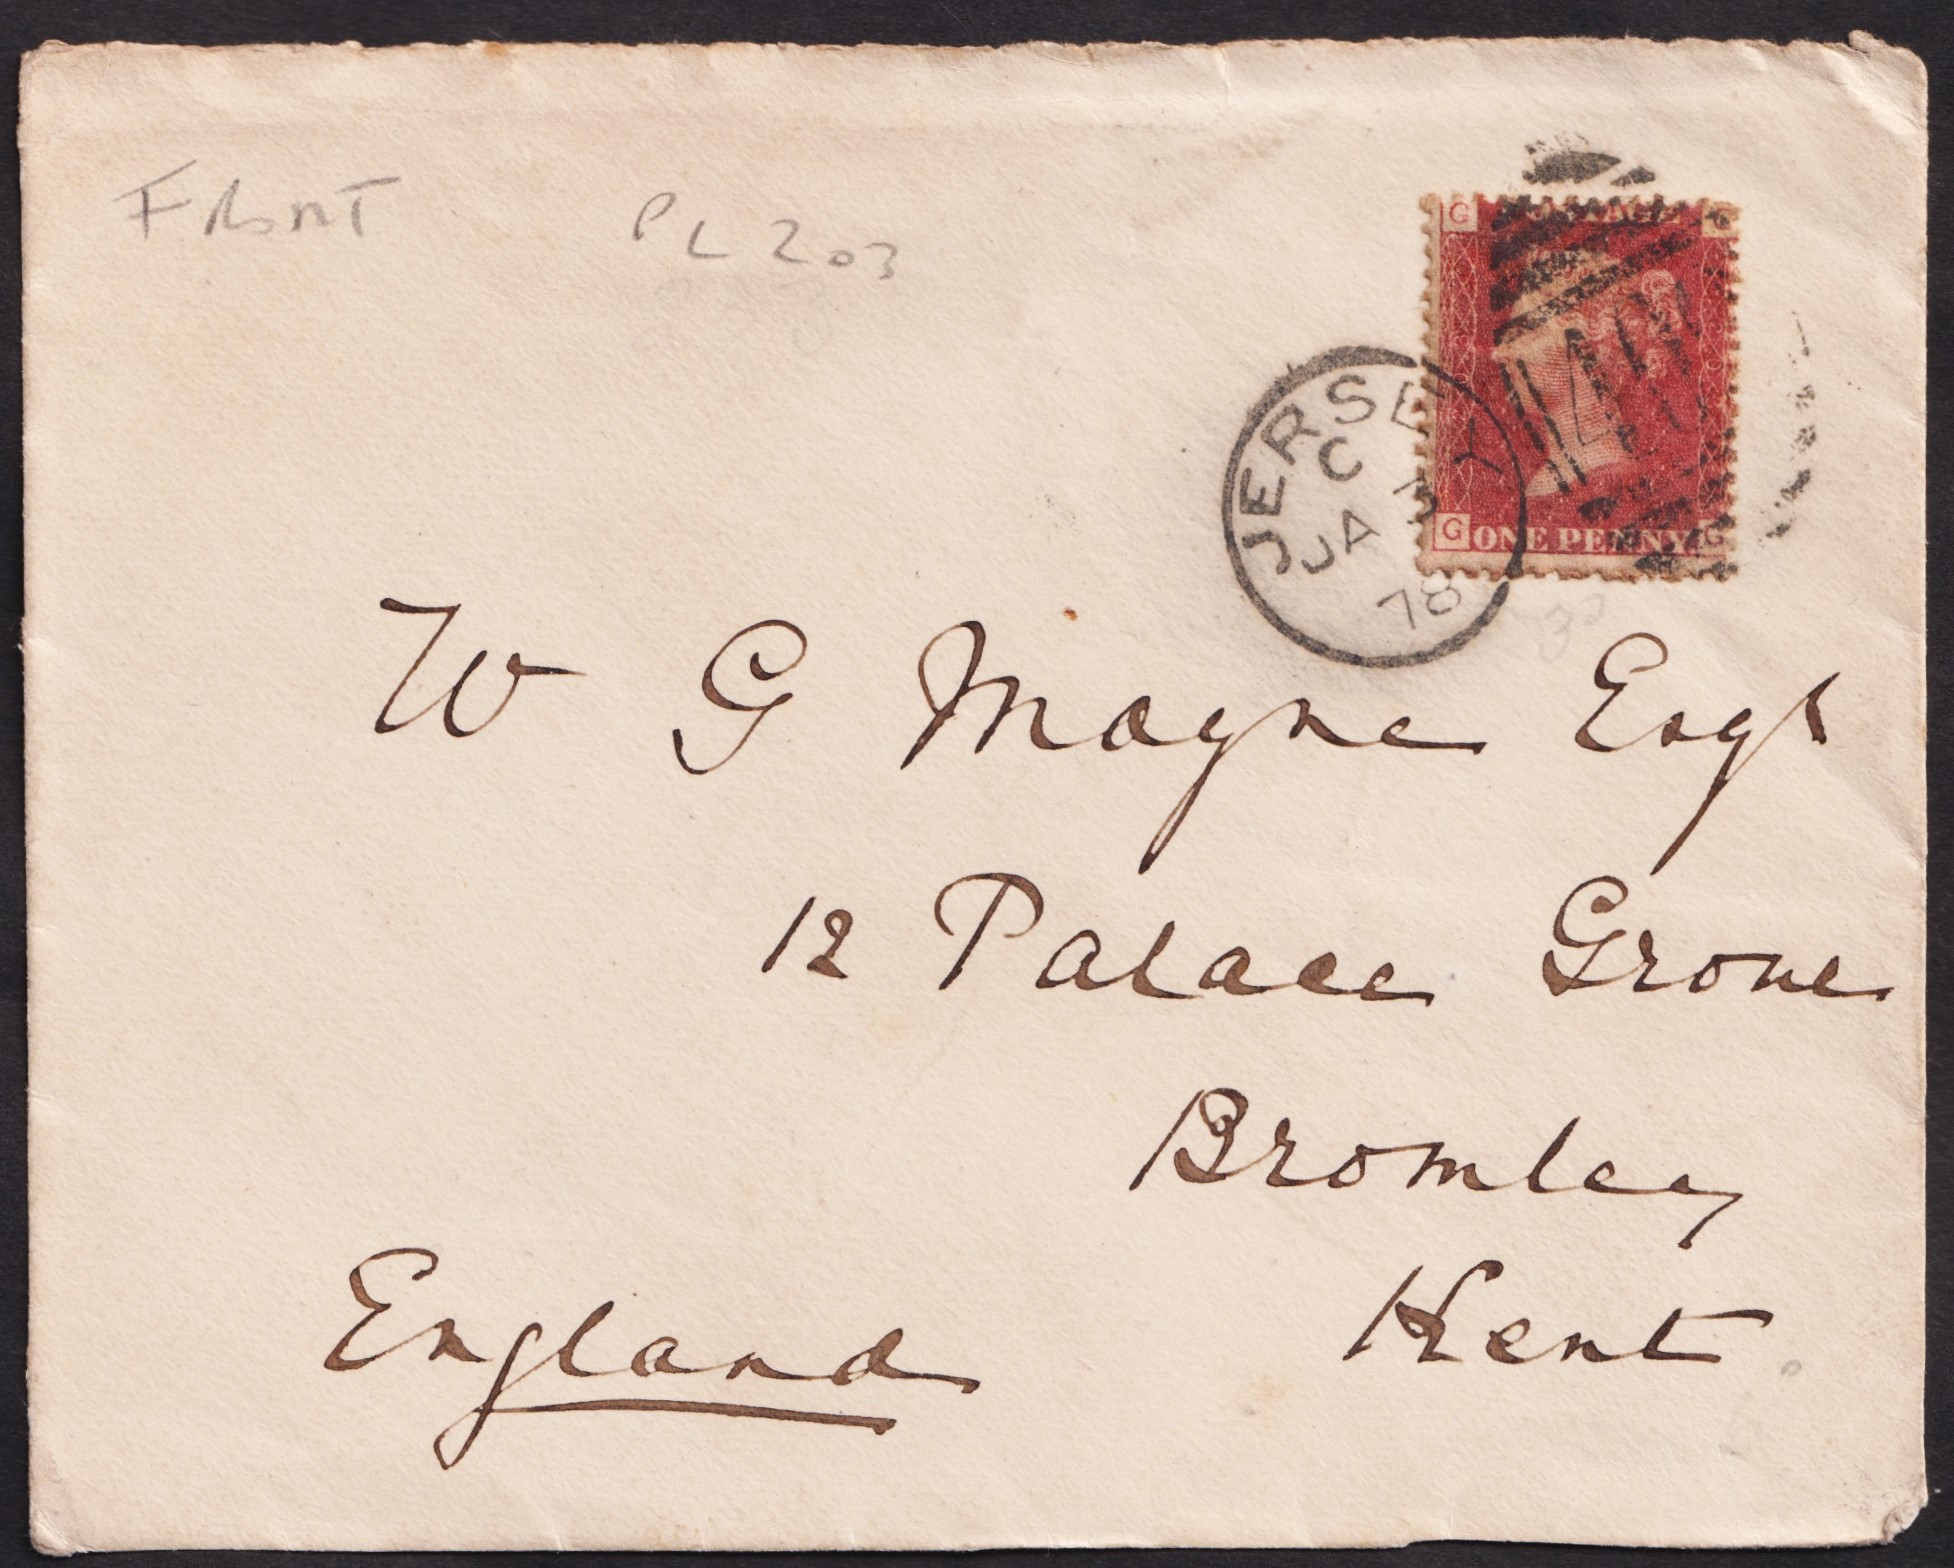 FRONT PL 203
G
JERSEY
C
JA
78
G ONE PENNY G
W G Mayne Esqr
12 Palace Grove
Bromley
Kent
England